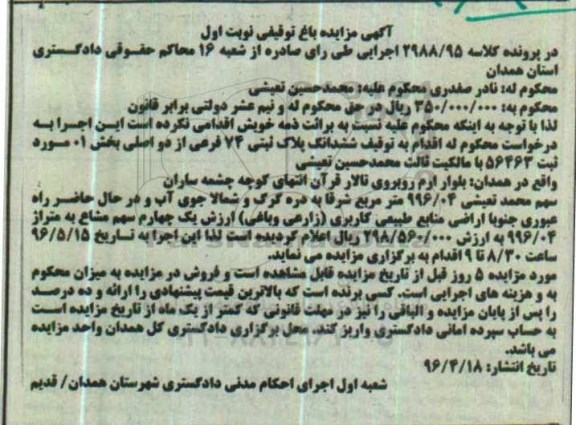 آگهی مزایده باغ توقیفی نوبت اول
در پرونده کلاسه ۲۹۸۸/۹۵ اجرایی طی رای صادره از شعبه ۱۶ محاکم حقوقی دادگستری
استان همدان
محکوم له: نادر صفدری محکوم علیه: محمدحسین نعیشی
محکوم به: ۳۵۰/۰۰۰/۰۰۰ ریال در حق محکوم له و نیم عشر دولتی برابر قانون
لذا با توجه به اینکه محکوم علیه نسبت به برائت ذمه خویش اقدامی نکرده است این اجرا به
درخواست محکوم له اقدام به توقیف ششدانگ پلاک ثبتی ۷۴ فرعی از دو اصلی بخش ۰۱ مورد
ثبت ۵۶۴۶۳ با مالکیت ثالث محمدحسین نعیشی
واقع در همدان: بلوار ارم روبروی تالار قرآن انتهای کوچه چشمه ساران
سهم محمد نعیشی ۹۹۶/۰۴ متر مربع شرقا به دره گرگ و شمالا جوی آب و در حال حاضر راه
عبوری جنوبا اراضی منابع طبیعی کاربری (زارعی وباغی) ارزش یک چهارم سهم مشاع به متراژ
۹۹۶/۰۴ به ارزش ۲۹۸/۵۶۰/۰۰۰ ریال اعلام گردیده است لذا این اجرا به تاریخ ۹۶/۵/۱۵
ساعت ۸/۳۰ تا ۹ اقدام به برگزاری مزایده می نماید.
مورد مزایده ۵ روز قبل از تاریخ مزایده قابل مشاهده است و فروش در مزایده به میزان محکوم
به و هزینه های اجرایی است. کسی برنده است که بالاترین قیمت پیشنهادی را ارائه و ده درصد
را پس از پایان مزایده و الباقی را نیز در مهلت قانونی که کمتر از یک ماه از تاریخ مزایده است
به حساب سپرده امانی دادگستری واریز کند. محل برگزاری دادگستری کل همدان واحد مزایده
می باشد.
تاریخ انتشار: ۹۶/۴/۱۸
شعبه اول اجرای احکام مدنی دادگستری شهرستان همدان/ قدیم